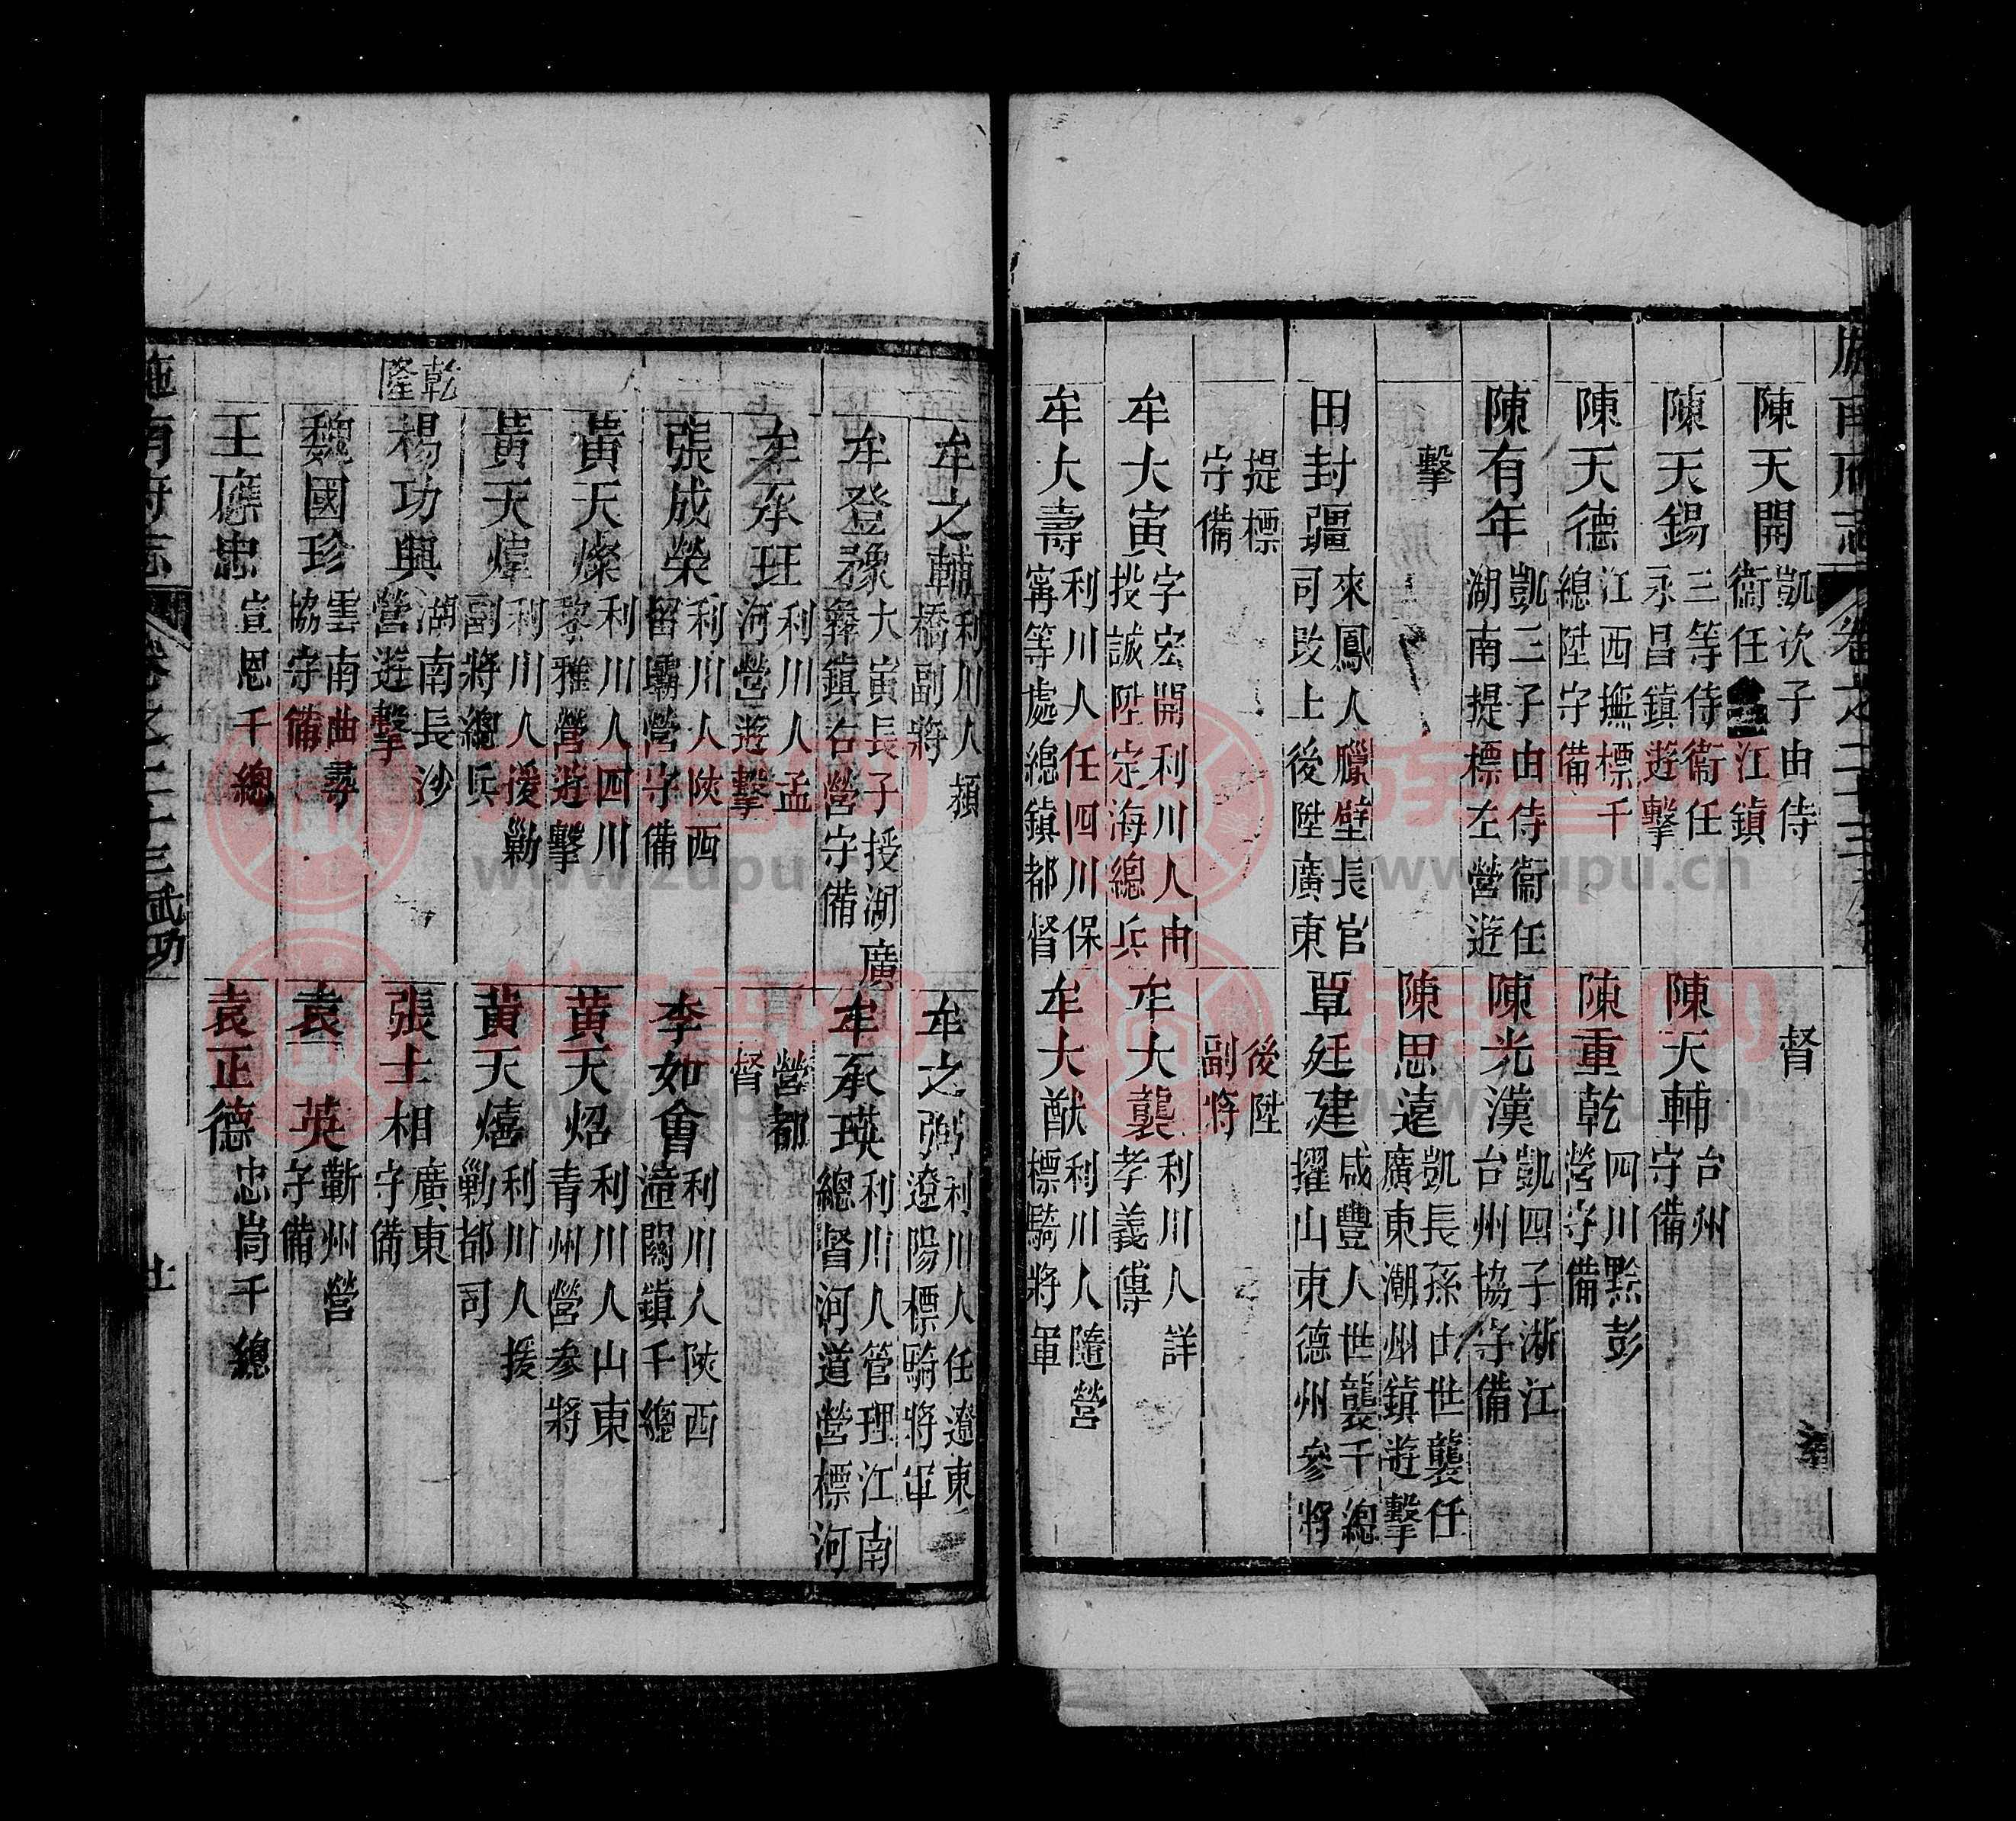 施南府志 卷之二十三
陳天開 凱次子由侍
衞任 江鎮
督
陳天錫 三等侍衞任
永昌鎮遊擊
陳天輔 台州
守備
陳天德 江西撫標千
總陞守備
陳重乾 四川黔彭
營守備
陳有年 凱三子由侍衞任
湖南提標左營遊
陳光漢 凱四子浙江
台州協守備
擊
陳思遠 凱長孫由世襲任
廣東潮州鎮遊擊
田封疆 來鳳人臘壁長官
司改土後陞廣東
覃廷建 咸豐人世襲千總
擢山東德州參將
提標
守備
後陞
副將
牟大寅 字宏開利川人由
投誠陞定海總兵
牟大襲 利川人詳
孝義傳
牟大壽 利川人任四川保
寧等處總鎮都督
牟大猷 利川人隨營
標騎將軍
牟之輔 利川人
橋副將
牟之弼 利川人任遼東
遼陽標騎將軍
牟登豫 大寅長子授湖廣
彝鎮右營守備
牟承瑛 利川人管理江南
總督河道營標河
牟承班 利川人孟
河營遊擊
營都
督
張成榮 利川人陝西
留壩營守備
李如會 利川人陝西
潼關鎮千總
黃天燦 利川人四川
黎雅營遊擊
黃天炤 利川人山東
青州營參將
黃天煒 利川人援勦
副將總兵
黃天熺 利川人援
勦都司
乾隆
楊功興 湖南長沙
營遊擊
張士相 廣東
守備
魏國珍 雲南曲尋
協守備
袁一英 蘄州營
守備
王應忠 宣恩千總
袁正德 忠峝千總
施南府志 卷之二十三 武功